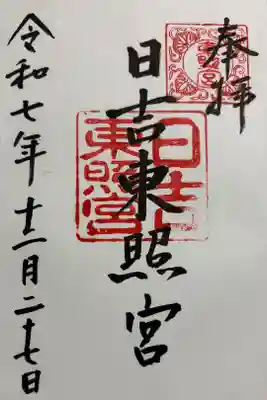 奉拝
日吉東照宮
日吉東照宮
令和七年十一月二十七日